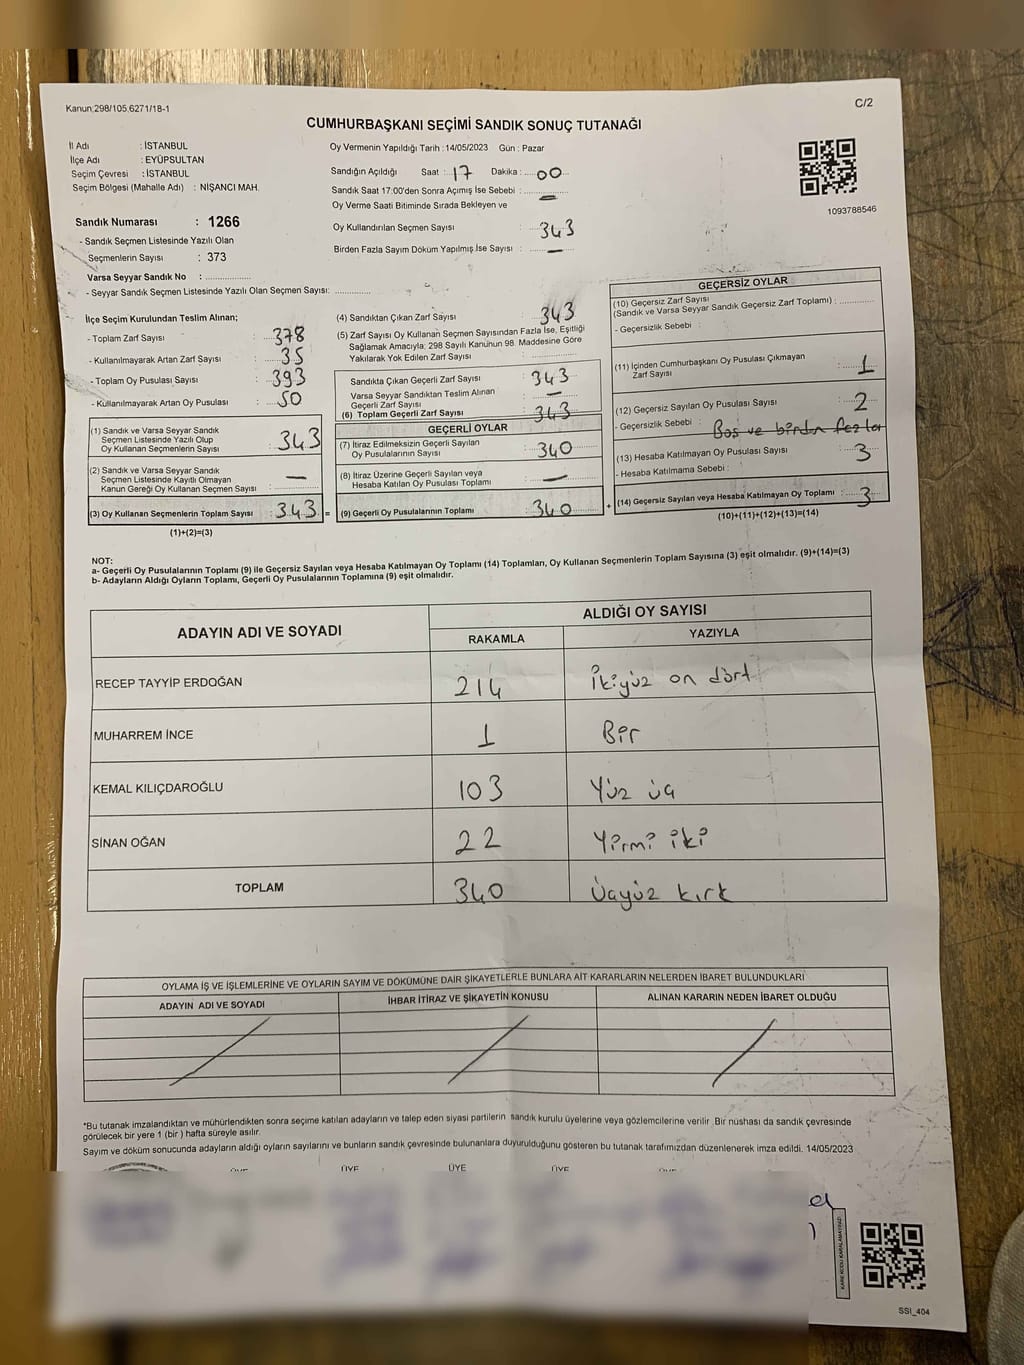 Kanun;298/105,6271/18-1
C/2
CUMHURBAŞKANI SEÇİMİ SANDIK SONUÇ TUTANAĞI
İl Adı : İSTANBUL
İlçe Adı : EYÜPSULTAN
Seçim Çevresi : İSTANBUL
Seçim Bölgesi (Mahalle Adı) : NİŞANCI MAH.
Sandık Numarası : 1266
- Sandık Seçmen Listesinde Yazılı Olan
Seçmenlerin Sayısı : 373
Varsa Seyyar Sandık No : ....................
- Seyyar Sandık Seçmen Listesinde Yazılı Olan Seçmen Sayısı: ..............
Oy Vermenin Yapıldığı Tarih : 14/05/2023 Gün : Pazar
Sandığın Açıldığı Saat : 17 Dakika : 00
Sandık Saat 17:00'den Sonra Açımış İse Sebebi : —
Oy Verme Saati Bitiminde Sırada Bekleyen ve
Oy Kullandırılan Seçmen Sayısı : 343
Birden Fazla Sayım Döküm Yapılmış İse Sayısı : —
1093788546
İlçe Seçim Kurulundan Teslim Alınan;
- Toplam Zarf Sayısı : 378
- Kullanılmayarak Artan Zarf Sayısı : 35
- Toplam Oy Pusulası Sayısı : 393
- Kullanılmayarak Artan Oy Pusulası : 50
(1) Sandık ve Varsa Seyyar Sandık
Seçmen Listesinde Yazılı Olup
Oy Kullanan Seçmenlerin Sayısı : 343
(2) Sandık ve Varsa Seyyar Sandık
Seçmen Listesinde Kayıtlı Olmayan
Kanun Gereği Oy Kullanan Seçmen Sayısı : —
(3) Oy Kullanan Seçmenlerin Toplam Sayısı : 343 =
(1)+(2)=(3)
(4) Sandıktan Çıkan Zarf Sayısı : 343
(5) Zarf Sayısı Oy Kullanan Seçmen Sayısından Fazla İse, Eşitliği
Sağlamak Amacıyla; 298 Sayılı Kanunun 98. Maddesine Göre
Yakılarak Yok Edilen Zarf Sayısı : ..............
Sandıkta Çıkan Geçerli Zarf Sayısı : 343
Varsa Seyyar Sandıktan Teslim Alınan
Geçerli Zarf Sayısı : —
(6) Toplam Geçerli Zarf Sayısı : 343
GEÇERLİ OYLAR
(7) İtiraz Edilmeksizin Geçerli Sayılan
Oy Pusulalarının Sayısı : 340
(8) İtiraz Üzerine Geçerli Sayılan veya
Hesaba Katılan Oy Pusulası Toplamı : —
(9) Geçerli Oy Pusulalarının Toplamı : 340 +
GEÇERSİZ OYLAR
(10) Geçersiz Zarf Sayısı
(Sandık ve Varsa Seyyar Sandık Geçersiz Zarf Toplamı) : ............
- Geçersizlik Sebebi :
(11) İçinden Cumhurbaşkanı Oy Pusulası Çıkmayan
Zarf Sayısı : 1
(12) Geçersiz Sayılan Oy Pusulası Sayısı : 2
- Geçersizlik Sebebi : Boş ve birden fazla
(13) Hesaba Katılmayan Oy Pusulası Sayısı : 3
- Hesaba Katılmama Sebebi :
(14) Geçersiz Sayılan veya Hesaba Katılmayan Oy Toplamı : 3
(10)+(11)+(12)+(13)=(14)
NOT:
a- Geçerli Oy Pusulalarının Toplamı (9) ile Geçersiz Sayılan veya Hesaba Katılmayan Oy Toplamı (14) Toplamları, Oy Kullanan Seçmenlerin Toplam Sayısına (3) eşit olmalıdır. (9)+(14)=(3)
b- Adayların Aldığı Oyların Toplamı, Geçerli Oy Pusulalarının Toplamına (9) eşit olmalıdır.
ADAYIN ADI VE SOYADI
ALDIĞI OY SAYISI
RAKAMLA YAZIYLA
RECEP TAYYİP ERDOĞAN 214 İkiyüz on dört
MUHARREM İNCE 1 Bir
KEMAL KILIÇDAROĞLU 103 Yüz üç
SİNAN OĞAN 22 Yirmi iki
TOPLAM 340 Üçyüz kırk
OYLAMA İŞ VE İŞLEMLERİNE VE OYLARIN SAYIM VE DÖKÜMÜNE DAİR ŞİKAYETLERLE BUNLARA AİT KARARLARIN NELERDEN İBARET BULUNDUKLARI
ADAYIN ADI VE SOYADI İHBAR İTİRAZ VE ŞİKAYETİN KONUSU ALINAN KARARIN NEDEN İBARET OLDUĞU
*Bu tutanak imzalandıktan ve mühürlendikten sonra seçime katılan adayların ve talep eden siyasi partilerin sandık kurulu üyelerine veya gözlemcilerine verilir. Bir nüshası da sandık çevresinde
görülecek bir yere 1 (bir ) hafta süreyle asılır.
Sayım ve döküm sonucunda adayların aldığı oyların sayılarını ve bunların sandık çevresinde bulunanlara duyurulduğunu gösteren bu tutanak tarafımızdan düzenlenerek imza edildi. 14/05/2023
ÜYE ÜYE ÜYE
KARE KODU KARALAMAYINIZ!
SSI_404